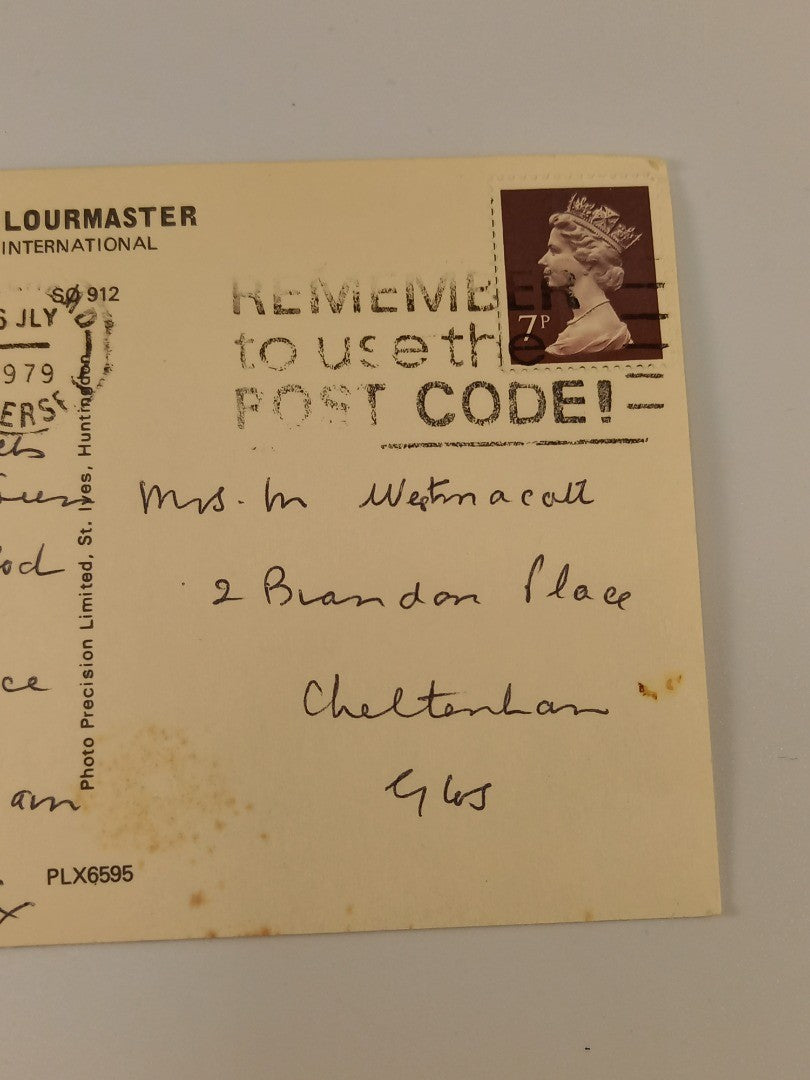 LOURMASTER
INTERNATIONAL
SO 912
6 JLY
1979
REMEMBER
to use the
POST CODE!
7P
Mrs. M Westmacott
2 Brandon Place
Cheltenham
Glos
od
ce
am
x
Photo Precision Limited, St. Ives, Huntingdon
PLX6595